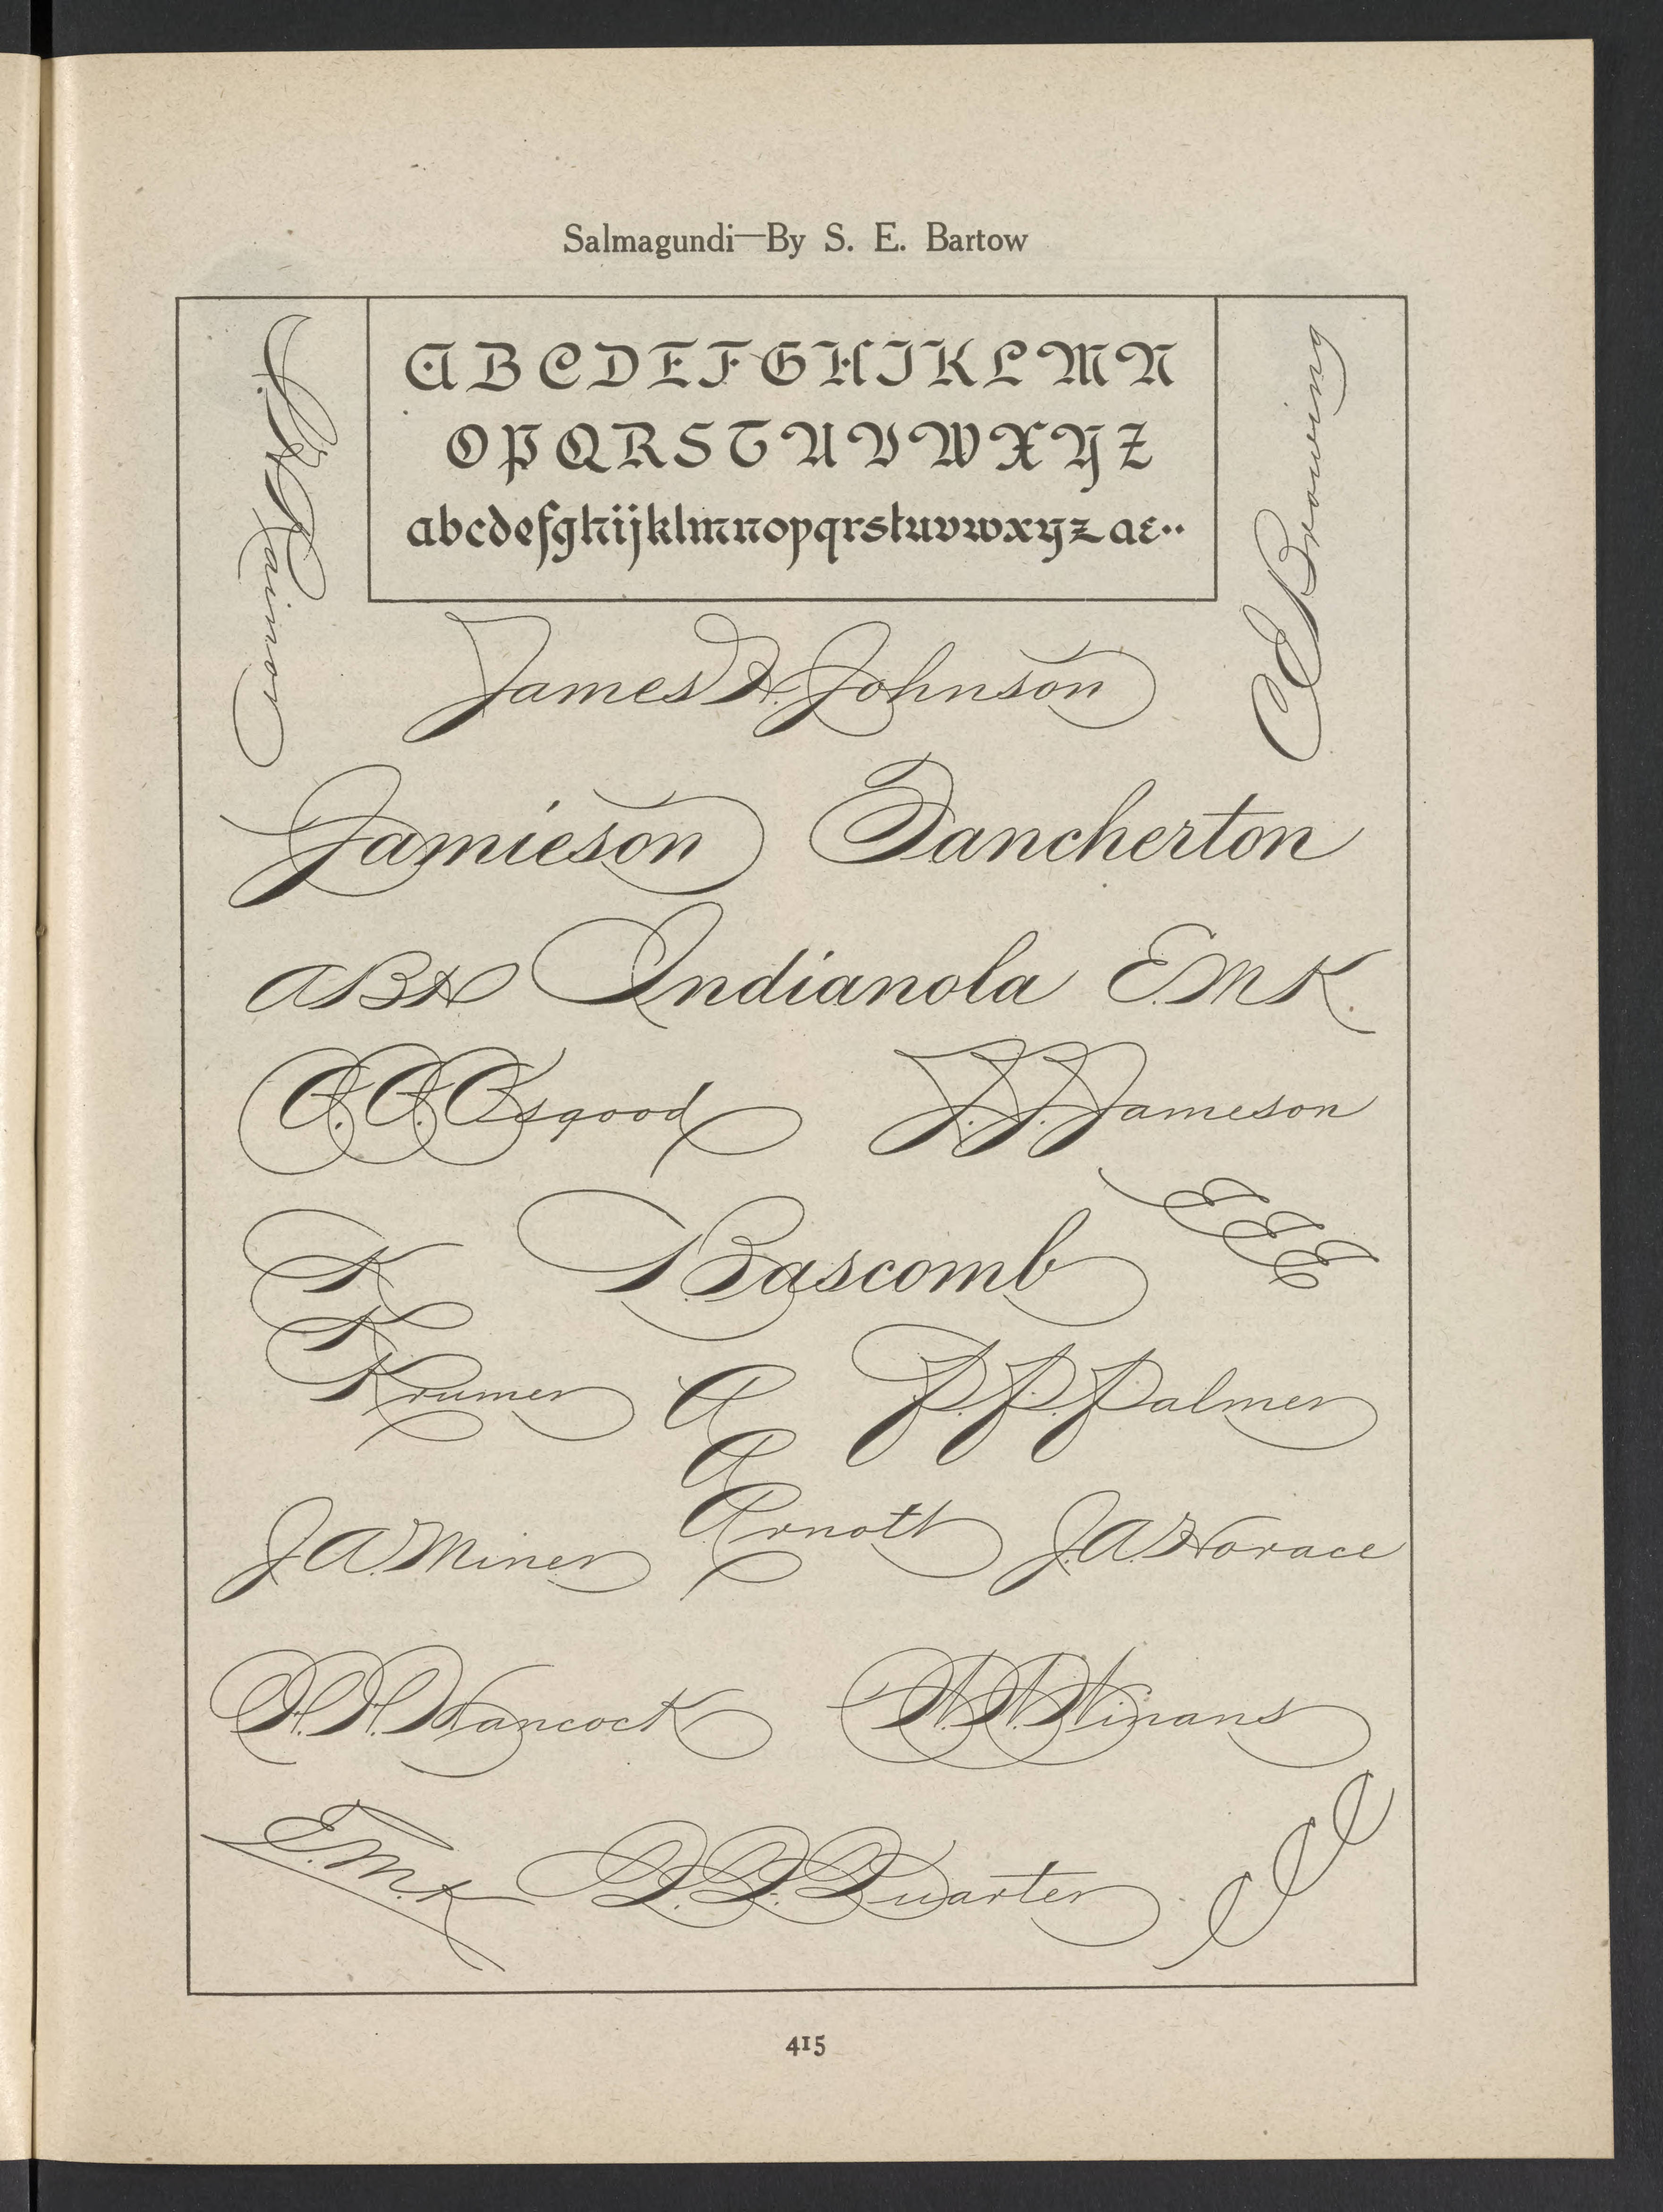 Salmagundi—By S. E. Bartow
A B C D E F G H I K L M N
O P Q R S T U V W X Y Z
abcdefghijklmnopqrstuvwxyz ae..
Rainor
C E Browning
James H. Johnson
Jamieson Tancherton
A B H Indianola E. M K.
O. O. Osgood J. J. Jameson
Bascomb E E E
K
K
Krumer
P. P. Palmer
A
A
Arnott
J. A. Miner J. A. Horace
H. H. Hancock W. W. Winans
E. M. K Q. Q. Quarter C C C
415